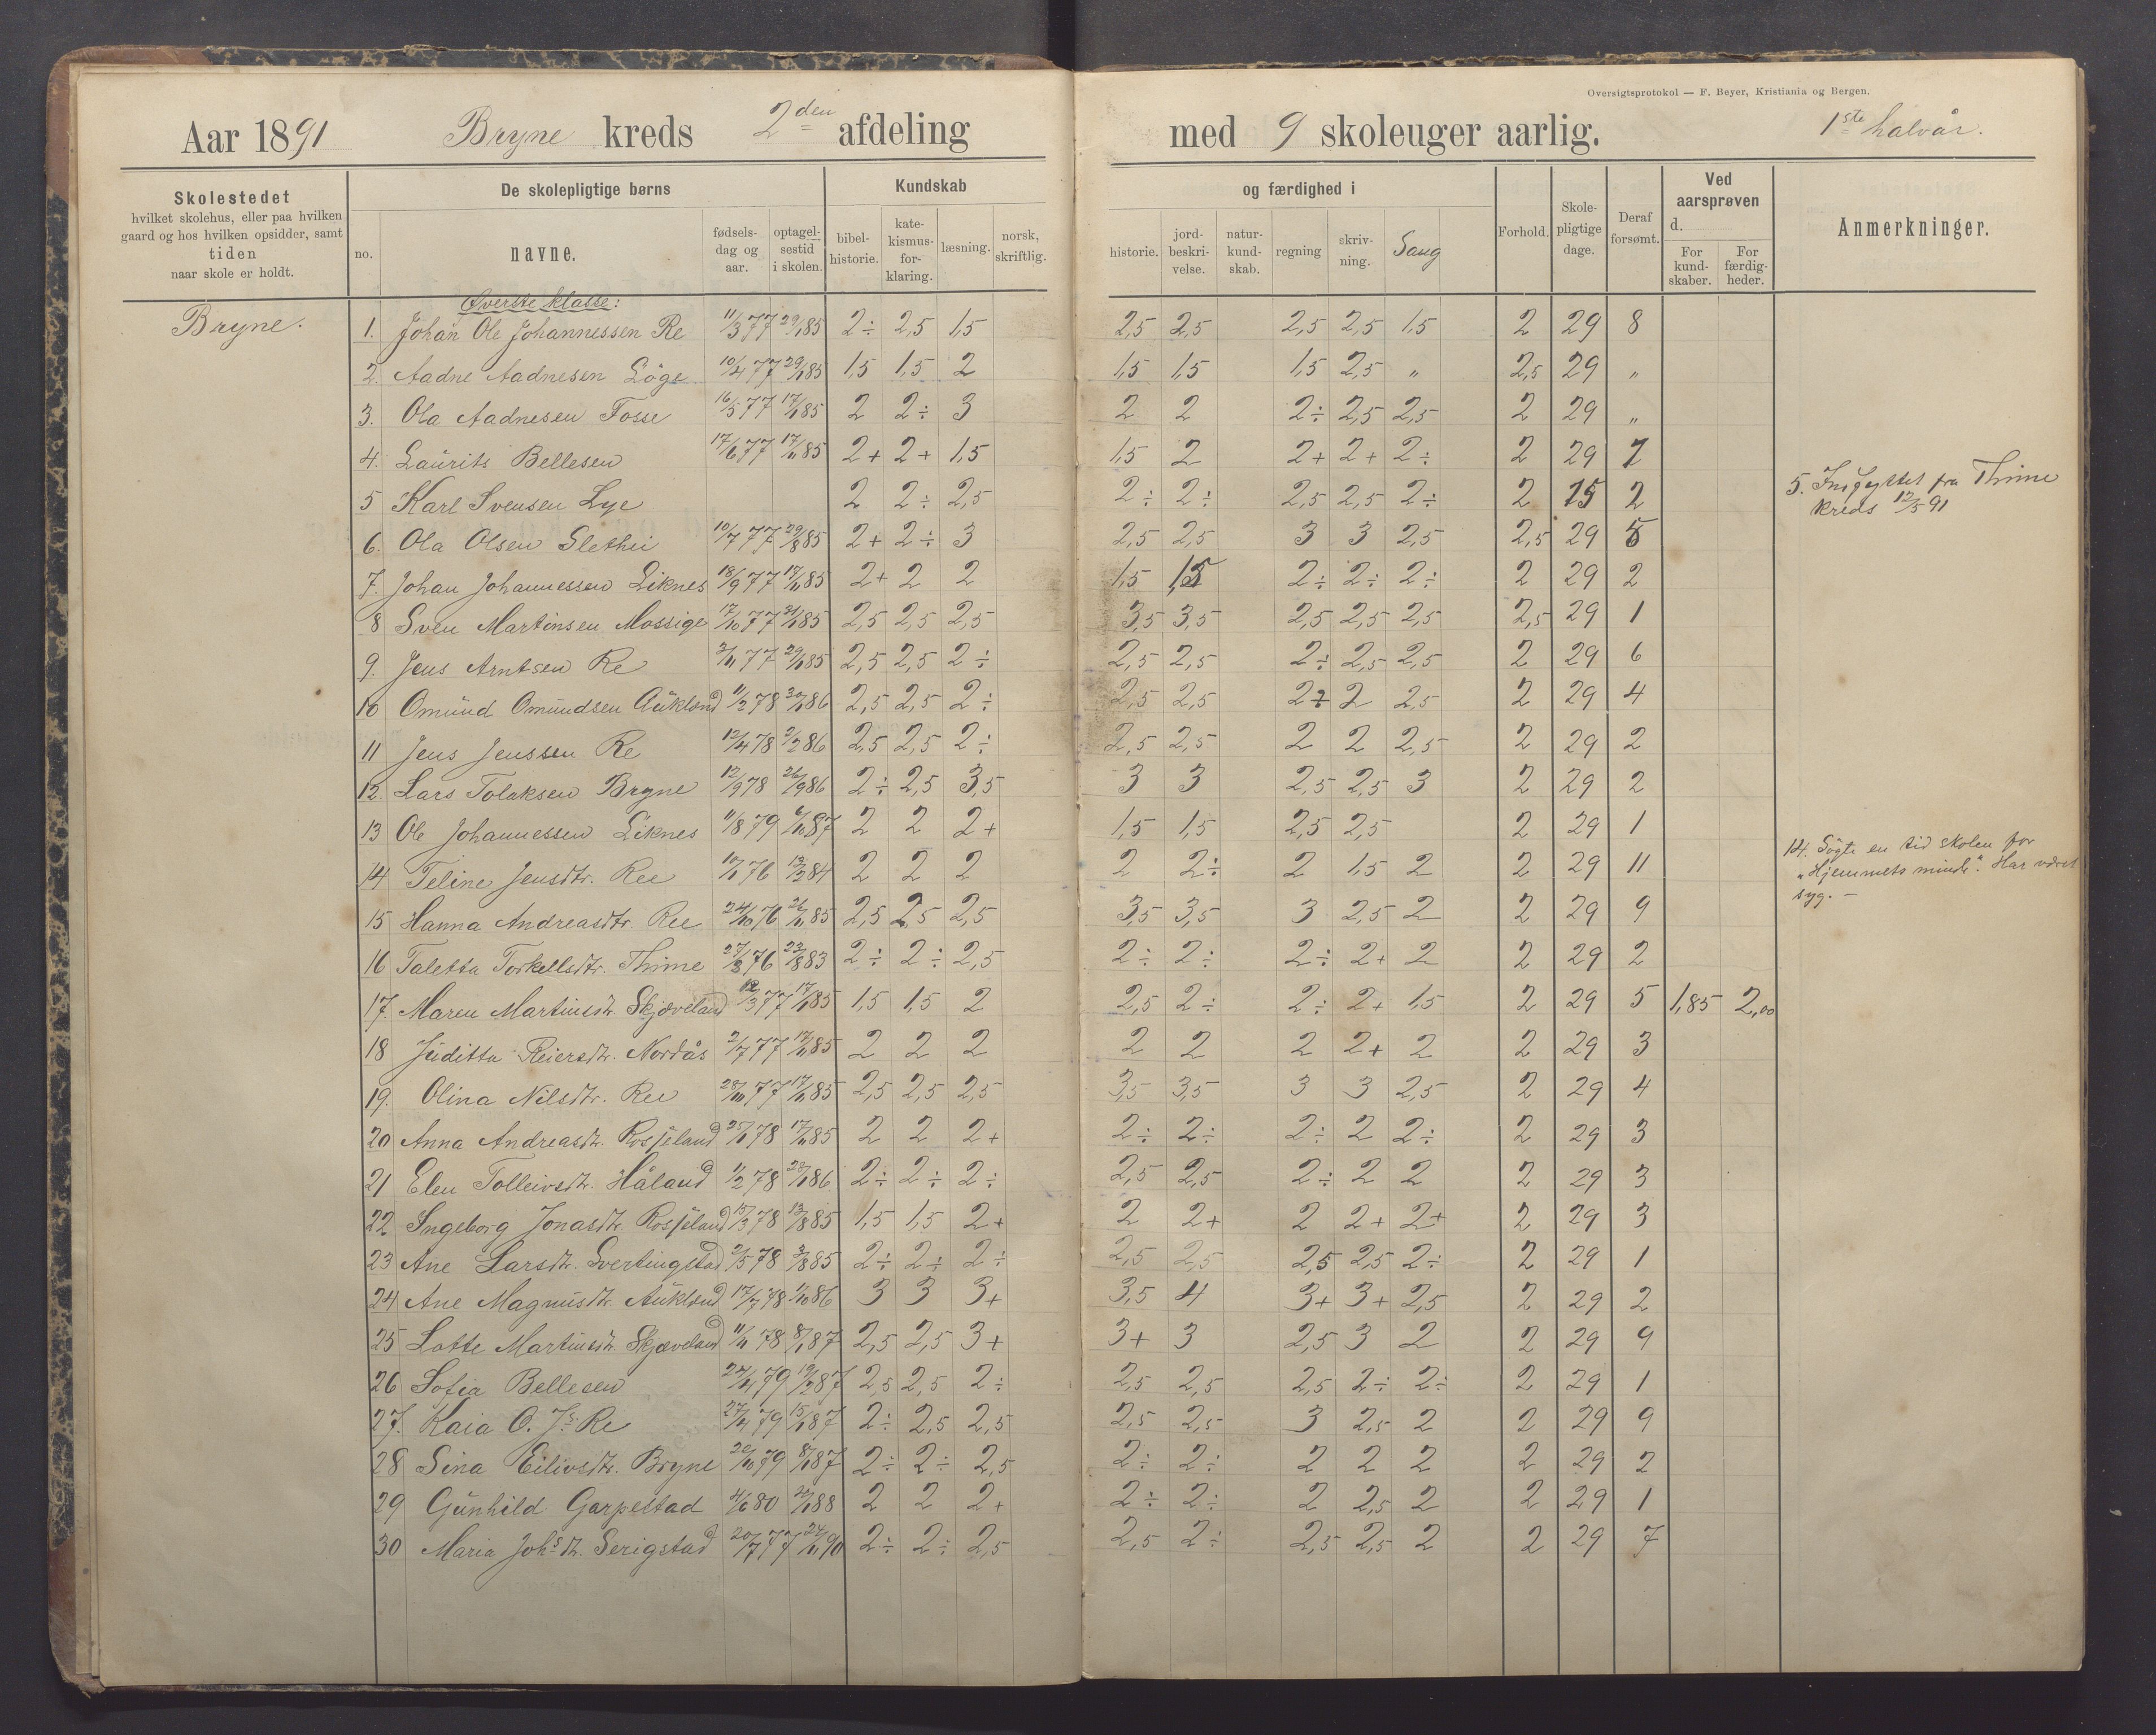 Oversigtsprotokol — F. Beyer, Kristiania og Bergen.
Aar 1891 Bryne kreds 2den afdeling med 9 skoleuger aarlig. 1ste halvår.
Skolestedet
hvilket skolehus, eller paa hvilken
gaard og hos hvilken opsidder, samt
tiden
naar skole er holdt.
De skolepligtige børns
no. navne. fødsels-dag og aar. optagel-sestid i skolen.
Kundskab og færdighed i
bibel-historie. kate-kismus-for-klaring. læsning. norsk, skriftlig. historie. jord-beskri-velse. natur-kund-skab. regning skriv-ning. Sang
Forhold. Skole-pligtige dage. Deraf forsømt.
Ved aarsprøven d.
For kund-skaber. For færdig-heder.
Anmerkninger.
Øverste klasse:
Bryne.
1. Johan Ole Johannessen Re 11/3 77 29/1 85 2÷ 2,5 1,5 2,5 2,5 2,5 2,5 1,5 2 29 8
2. Aadne Aadnesen Løge 10/4 77 29/1 85 1,5 1,5 2 1,5 1,5 1,5 2,5 „ 2,5 29 „
3. Ola Aadnesen Fosse 16/5 77 17/11 85 2 2÷ 3 2 2 2÷ 2,5 2,5 2 29 „
4. Laurits Bellesen 17/6 77 17/11 85 2+ 2+ 1,5 1,5 2 2+ 2+ 2÷ 2 29 7
5 Karl Svensen Lye 2 2÷ 2,5 2÷ 2÷ 2,5 2,5 2÷ 2 15 2
5. Indflyttet fra Thime
kreds 12/5 91
6. Ola Olsen Slethei 10/7 77 29/8 85 2+ 2÷ 3 2,5 2,5 3 3 2,5 2,5 29 5
7. Johan Johannessen Liknes 18/9 77 17/11 85 2+ 2 2 1,5 1,5 2÷ 2÷ 2÷ 2 29 2
8 Sven Martinsen Mossige 17/10 77 21/1 85 2,5 2,5 2,5 3,5 3,5 2,5 2,5 2,5 2,5 29 1
9. Jens Arntsen Re 2/11 77 29/1 85 2,5 2,5 2÷ 2,5 2,5 2÷ 2,5 2,5 2 29 6
10 Omund Omundsen Aukland 11/2 78 20/1 86 2,5 2,5 2÷ 2,5 2,5 2÷ 2 2,5 2 29 4
11 Jens Jenssen Re 12/4 78 2/2 86 2,5 2,5 2÷ 2,5 2,5 2 2 2,5 2 29 2
12. Lars Tolaksen Bryne 12/9 78 26/9 86 2÷ 2,5 3,5 3 3 2,5 2,5 3 2 29 2
13 Ole Johannessen Liknes 11/8 79 6/10 87 2 2 2+ 1,5 1,5 2,5 2,5 2 29 1
14 Teline Jensdtr. Ree 10/1 76 13/2 84 2 2 2 2 2÷ 2 1,5 2 2 29 11
14. Søgte en tid skolen for
„Hjemmets minde“. Har været
syg. —
15 Hanna Andreasdtr. Ree 24/10 76 26/11 85 2,5 2,5 2,5 3,5 3,5 3 2,5 2 2 29 9
16 Taletta Torkellsdtr. Thime 27/8 76 23/8 83 2÷ 2÷ 2,5 2÷ 2÷ 2÷ 2+ 2 2 29 2
17. Maren Martinsdtr. Skjæveland 12/3 77 17/11 85 1,5 1,5 2 2,5 2÷ 2÷ 2+ 1,5 2 29 5 1,85 2,00
18 Juditta Reiersdtr. Nordås 2/7 77 17/11 85 2 2 2 2 2 2 2+ 2 2 29 3
19. Olina Nilsdtr. Ree 28/10 77 17/11 85 2,5 2,5 2,5 3,5 3,5 3 3 2,5 2 29 4
20 Anna Andreasdtr. Rosseland 25/1 78 17/11 85 2 2 2+ 2÷ 2÷ 2÷ 2 2÷ 2 29 3
21 Elen Tolleivsdtr. Håland 1/2 78 28/1 86 2÷ 2÷ 2÷ 2,5 2,5 2÷ 2 2 2 29 3
22 Ingeborg Jonasdtr. Rosseland 15/3 78 13/8 85 1,5 1,5 2+ 2 2+ 2 2+ 2+ 2 29 3
23 Ane Larsdtr. Svertingstad 2/5 78 3/8 85 2÷ 2÷ 2÷ 2,5 2,5 2,5 2,5 2÷ 2 29 1
24 Ane Magnusdtr. Aukland 17/7 78 1/10 86 3 3 3+ 3,5 4 3+ 3+ 2,5 2 29 2
25 Lotte Martinsdtr. Skjæveland 11/11 78 8/1 87 2,5 2,5 3+ 3+ 3 2,5 3 2 2 29 9
26 Sofia Bellesen 24/4 79 19/2 87 2,5 2,5 2÷ 2,5 2,5 2,5 2÷ 2÷ 2 29 1
27. Kaia O. Js. Re 27/4 79 15/1 87 2÷ 2,5 2,5 2,5 2,5 3 2,5 2 2 29 9
28 Sina Eilivsdtr. Bryne 22/10 79 8/1 87 2÷ 2÷ 2,5 2÷ 2÷ 2 2 2 2 29 2
29 Gunhild Garpestad 4/6 80 25/1 88 2 2 2+ 2÷ 2÷ 2 2,5 2 2 29 1
30 Maria Johsdtr. Serigstad 20/7 77 24/11 90 2÷ 2÷ 2,5 2,5 2÷ 2,5 2,5 2 2 29 7